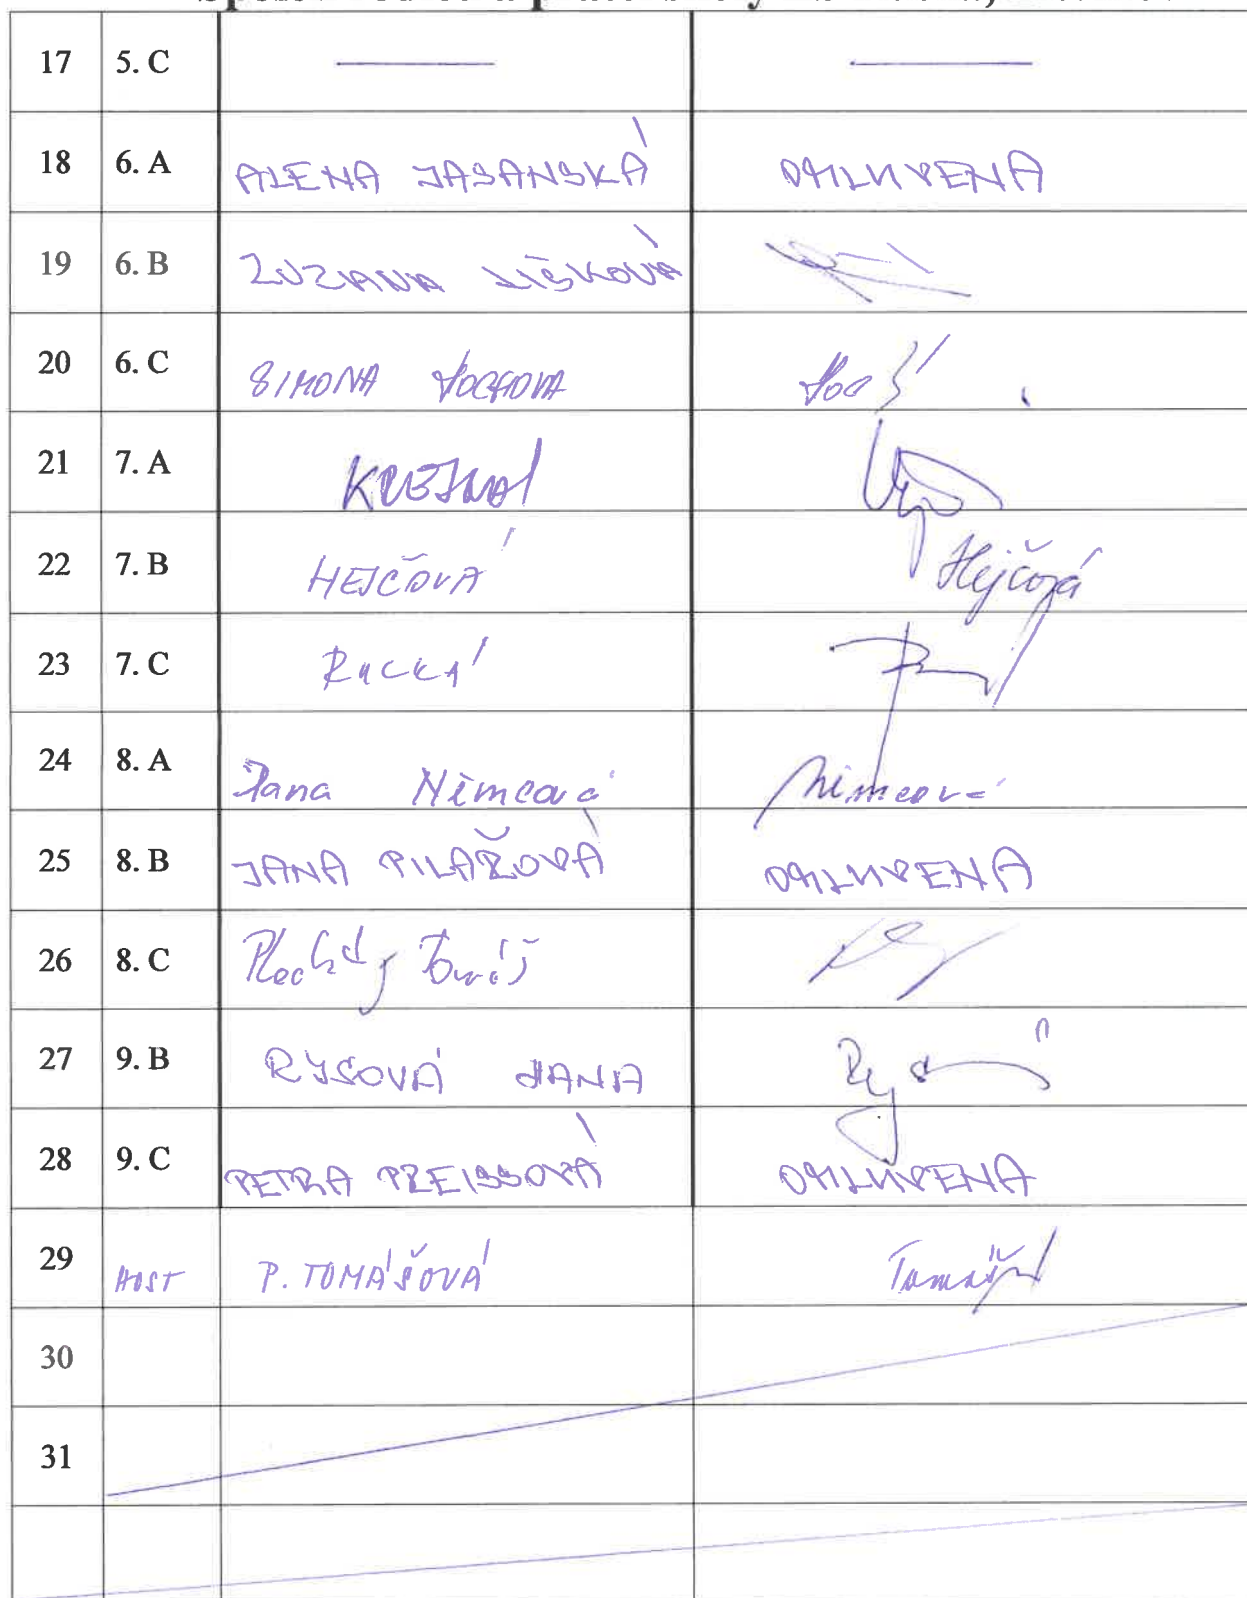 17 5. C
18 6. A ALENA JASANSKÁ OMLUVENA
19 6. B ZUZANA LIŠKOVÁ
20 6. C SIMONA
21 7. A
22 7. B HEJČOVÁ Hejčová
23 7. C RUCKÁ
24 8. A Jana Němcová Němcová
25 8. B JANA PILAŘOVÁ OMLUVENA
26 8. C Plechatý Tomáš
27 9. B RYSOVÁ HANA
28 9. C PETRA PREISSOVÁ OMLUVENA
29 HOST P. TOMÁŠOVÁ
30
31